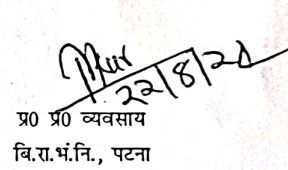 22/8/20
प्र0 प्र0 व्यवसाय
बि.रा.भं.नि., पटना